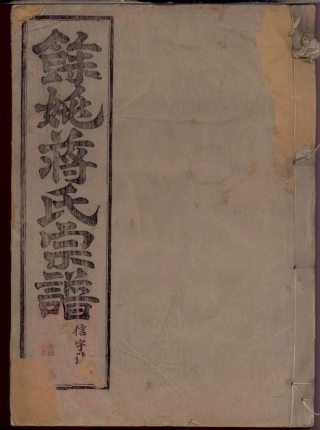 餘姚蔣氏宗譜
信字